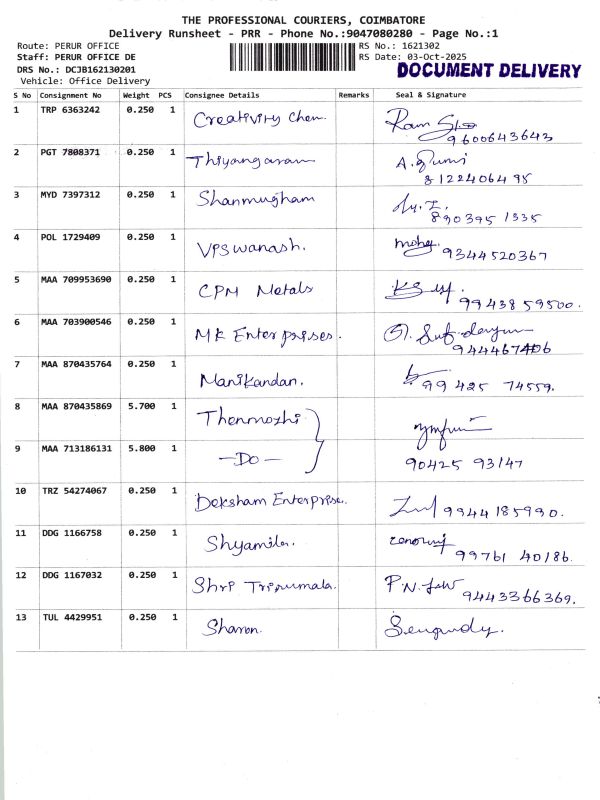 THE PROFESSIONAL COURIERS, COIMBATORE
Delivery Runsheet - PRR - Phone No.:9047080280 - Page No.:1
Route: PERUR OFFICE RS No.: 1621302
Staff: PERUR OFFICE DE RS Date: 03-Oct-2025
DRS No.: DCJB162130201 DOCUMENT DELIVERY
Vehicle: Office Delivery
S No Consignment No Weight PCS Consignee Details Remarks Seal & Signature
1 TRP 6363242 0.250 1 Creativity Chem. Ram
9600643643
2 PGT 7808371 0.250 1 Thiyangaram A.
8122406495
3 MYD 7397312 0.250 1 Shanmugham
890395 1335
4 POL 1729409 0.250 1 VPSwanash. mohg 9344520367
5 MAA 709953690 0.250 1 CPM Metals
99438 59500.
6 MAA 703900546 0.250 1 MK Enterprises.
944467406
7 MAA 870435764 0.250 1 Manikandan.
99 425 74559.
8 MAA 870435869 5.700 1 Thenmozhi
9 MAA 713186131 5.800 1 —Do— 90425 93147
10 TRZ 54274067 0.250 1 Deksham Enterprise. 9944185990.
11 DDG 1166758 0.250 1 Shyamila.
99761 40186.
12 DDG 1167032 0.250 1 Shri Tripumala. P.N.
9443366369.
13 TUL 4429951 0.250 1 Sharon.